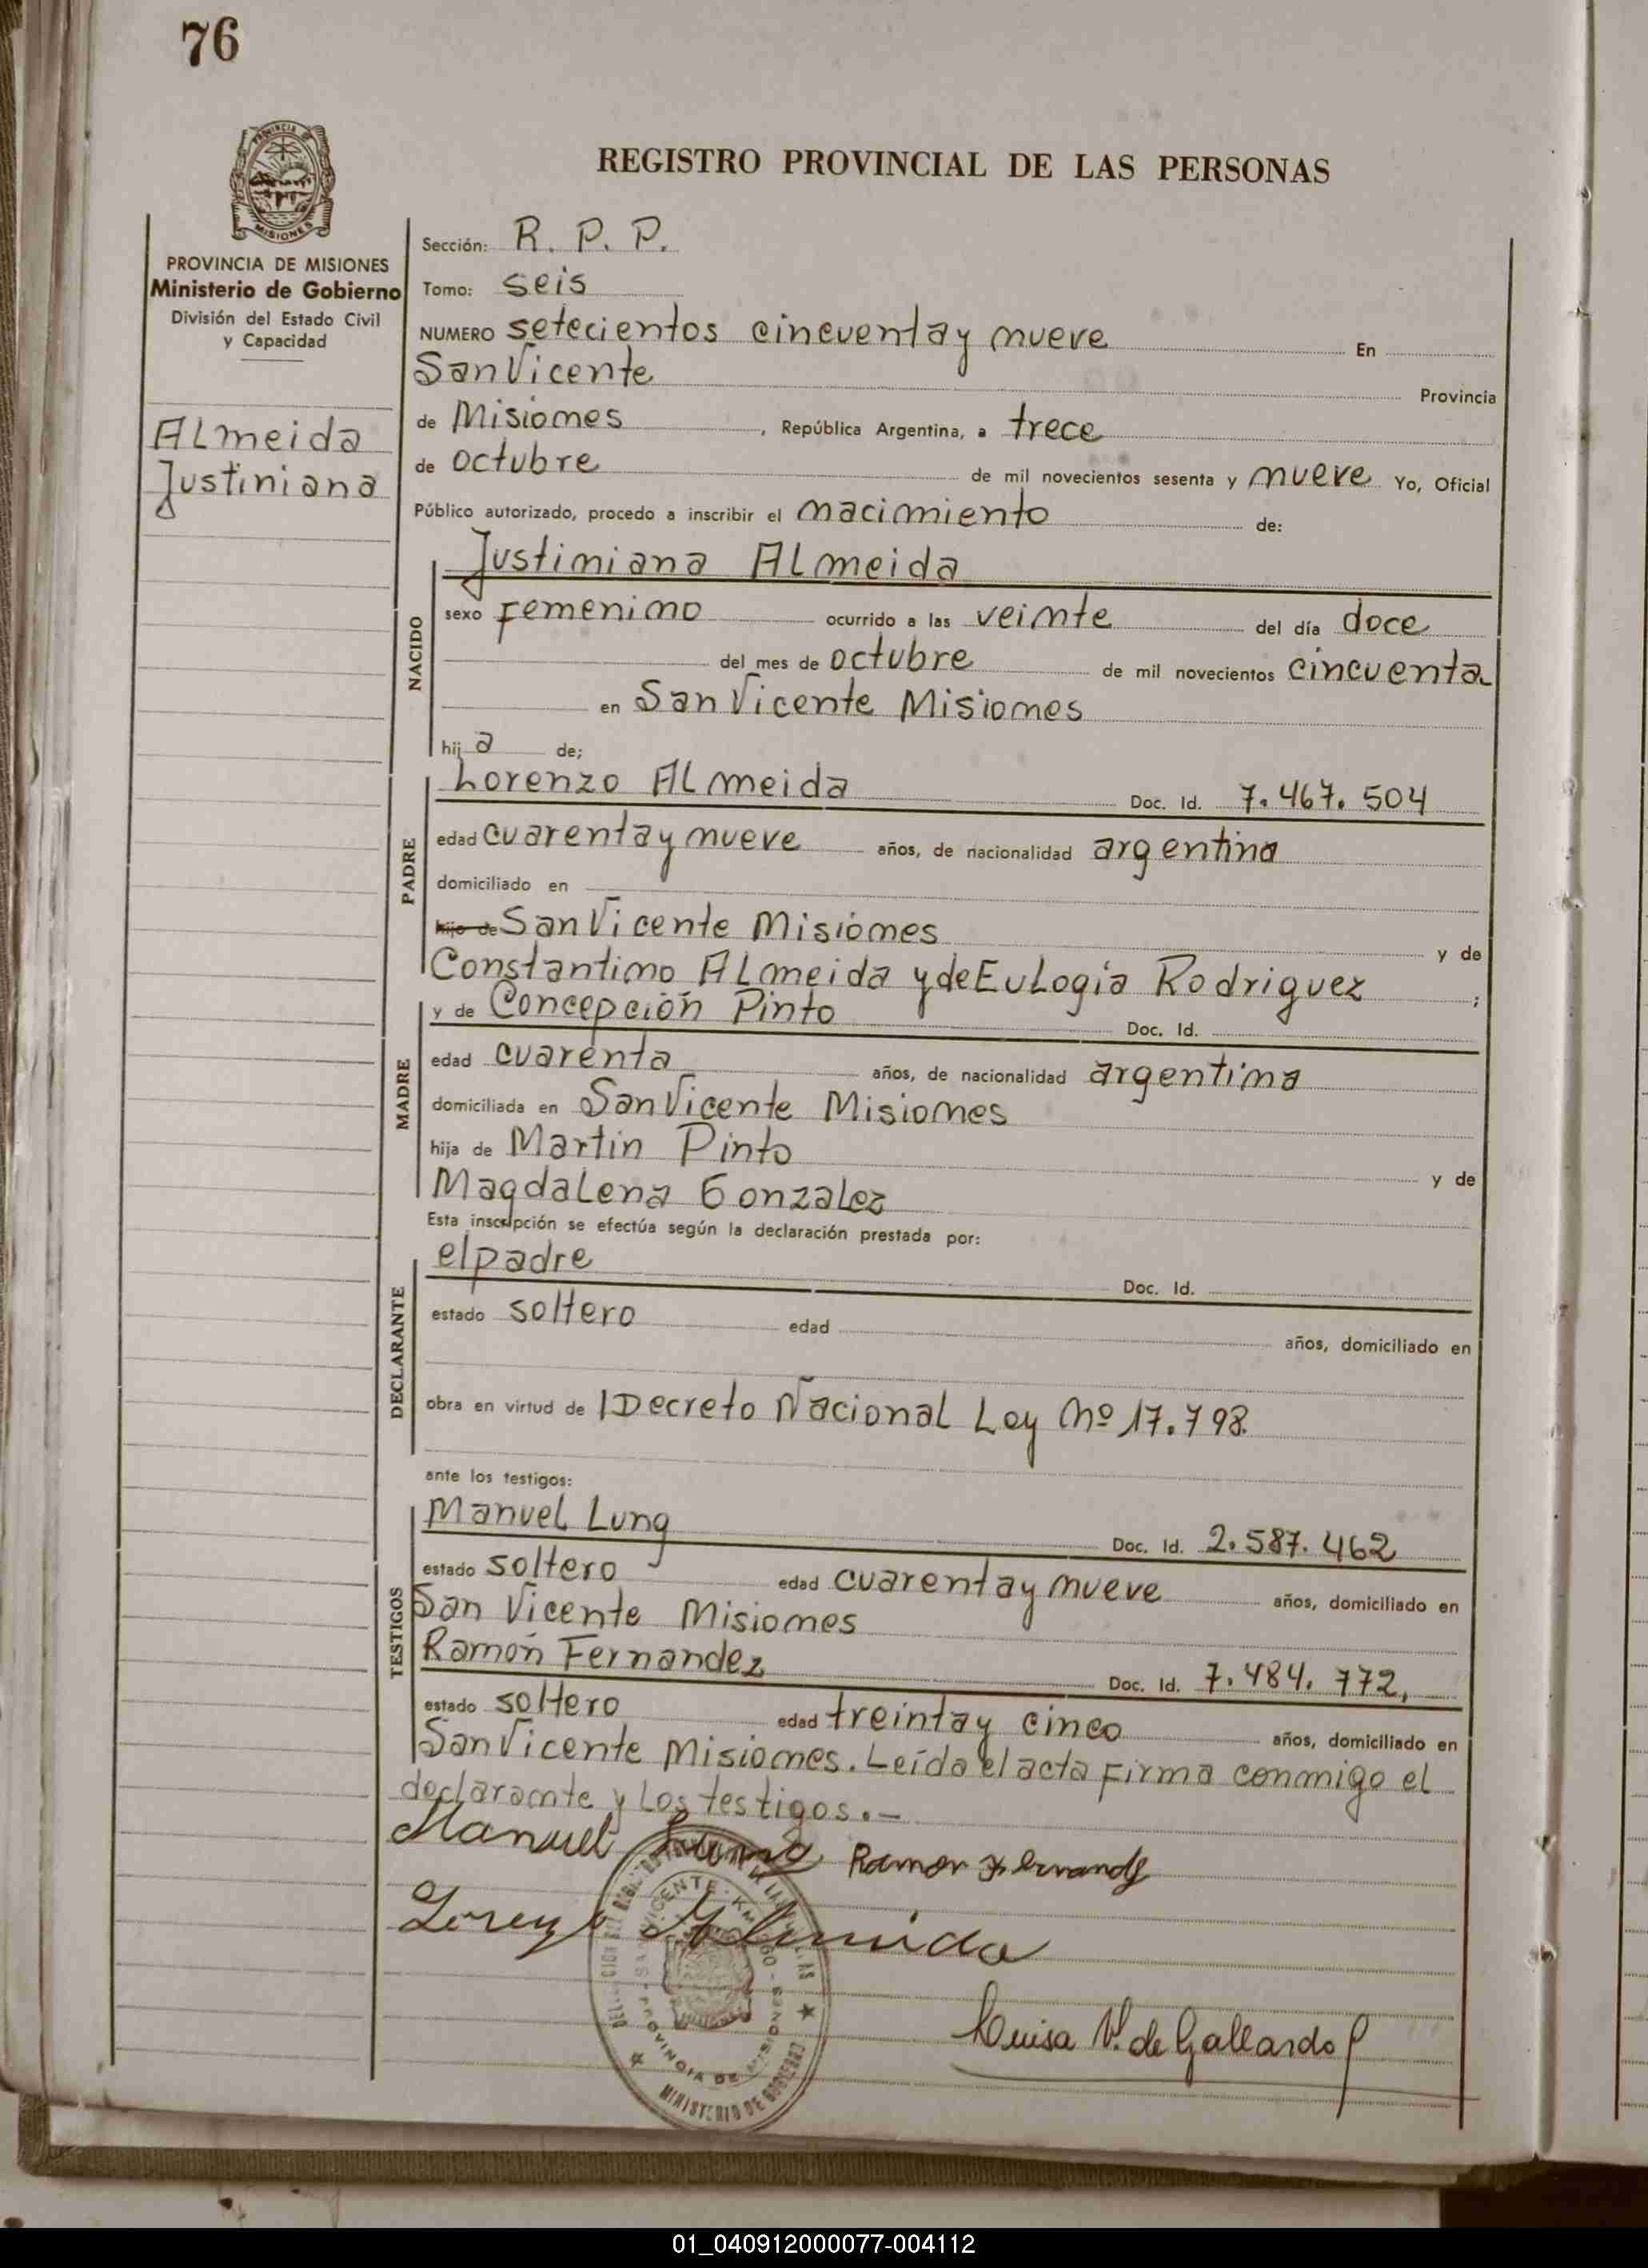 76
PROVINCIA DE
MISIONES
REGISTRO PROVINCIAL DE LAS PERSONAS
PROVINCIA DE MISIONES
Ministerio de Gobierno
División del Estado Civil
y Capacidad
Almeida
Justiniana
Sección: R. P. P.
Tomo: seis
NUMERO setecientos cincuenta y nueve En
San Vicente Provincia
de Misiones, República Argentina, a trece
de octubre de mil novecientos sesenta y nueve Yo, Oficial
Público autorizado, procedo a inscribir el nacimiento de:
NACIDO
Justiniana Almeida
sexo femenino ocurrido a las veinte del día doce
del mes de octubre de mil novecientos cincuenta
en San Vicente Misiones
hija de;
PADRE
Lorenzo Almeida Doc. Id. 7.467.504
edad cuarenta y nueve años, de nacionalidad argentina
domiciliado en
hijo de San Vicente Misiones y de
Constantino Almeida y de Eulogia Rodriguez ;
MADRE
y de Concepción Pinto Doc. Id.
edad cuarenta años, de nacionalidad argentina
domiciliada en San Vicente Misiones
hija de Martin Pinto y de
Magdalena Gonzalez
Esta inscripción se efectúa según la declaración prestada por:
DECLARANTE
el padre Doc. Id.
estado soltero edad años, domiciliado en
obra en virtud de Decreto Nacional Ley Nº 17.798.
ante los testigos:
TESTIGOS
Manuel Lung Doc. Id. 2.587.462
estado soltero edad cuarenta y nueve años, domiciliado en
San Vicente Misiones
Ramón Fernandez Doc. Id. 7.484.772,
estado soltero edad treinta y cinco años, domiciliado en
San Vicente Misiones. Leída el acta firma conmigo el
declarante y los testigos.-
Manuel Lung Ramon Fernandez
Lorenzo Almeida
SAN VICENTE - KM
PROVINCIA DE MISIONES
MINISTERIO DE GOBIERNO
Luisa V. de Gallardo
01_040912000077-004112